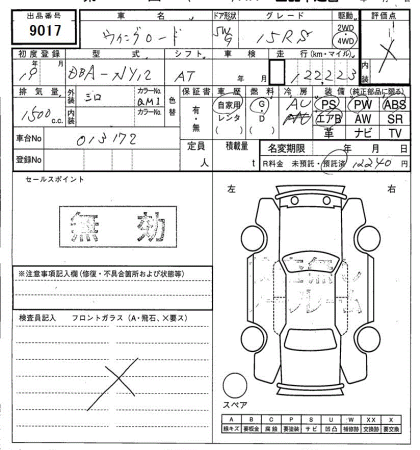 出品番号 車名 ドア形状 グレード 駆動 評価点
9017 ウィングロード 5W 15RS 2WD 4WD
初度登録 型式 シフト 車検 走行(km・マイル)
19 DBA-NY12 AT 年 月 122223
排気量 外装 カラーNo. 色替 保証書 車歴 燃料 冷房 装備(純正部品に限る)
1500 c.c. QM1 有・無 自家用 G AC PS PW ABS
内装 カラーNo. レンタ D エアB AW SR
( ) ( ) 革 ナビ TV
車台No 013172
定員 人 積載量 t 名変期限 年 月 日
登録No R料金 未預託・預託済 12240円
セールスポイント
無効
左 右
※注意事項記入欄(修復・不具合箇所および状態等)
検査員記入 フロントガラス(A・飛石、×要ス)
スペア
A B C P S U W X XX
線キズ 要板金 腐蝕 要塗装 サビ 凹凸 補修跡 交換跡 要交換